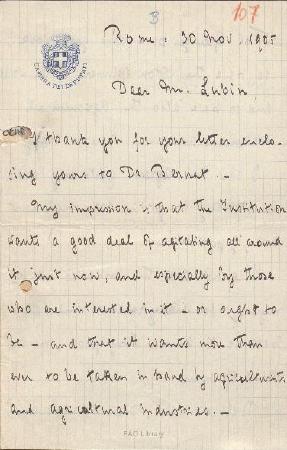 B
107
CAMERA DEI DEPUTATI
Rome: 30 Nov. 1905
Dear Mr. Lubin,
I thank you for your letter enclo-
sing yours to Dr. Bernat. —
My impression is that the Institution
wants a good deal of agitating all around
it just now, and especially by those
who are interested in it - or ought to
be - and that it wants more than
ever to be taken in hand by agriculturists
and agricultural industries. —
FAO Library